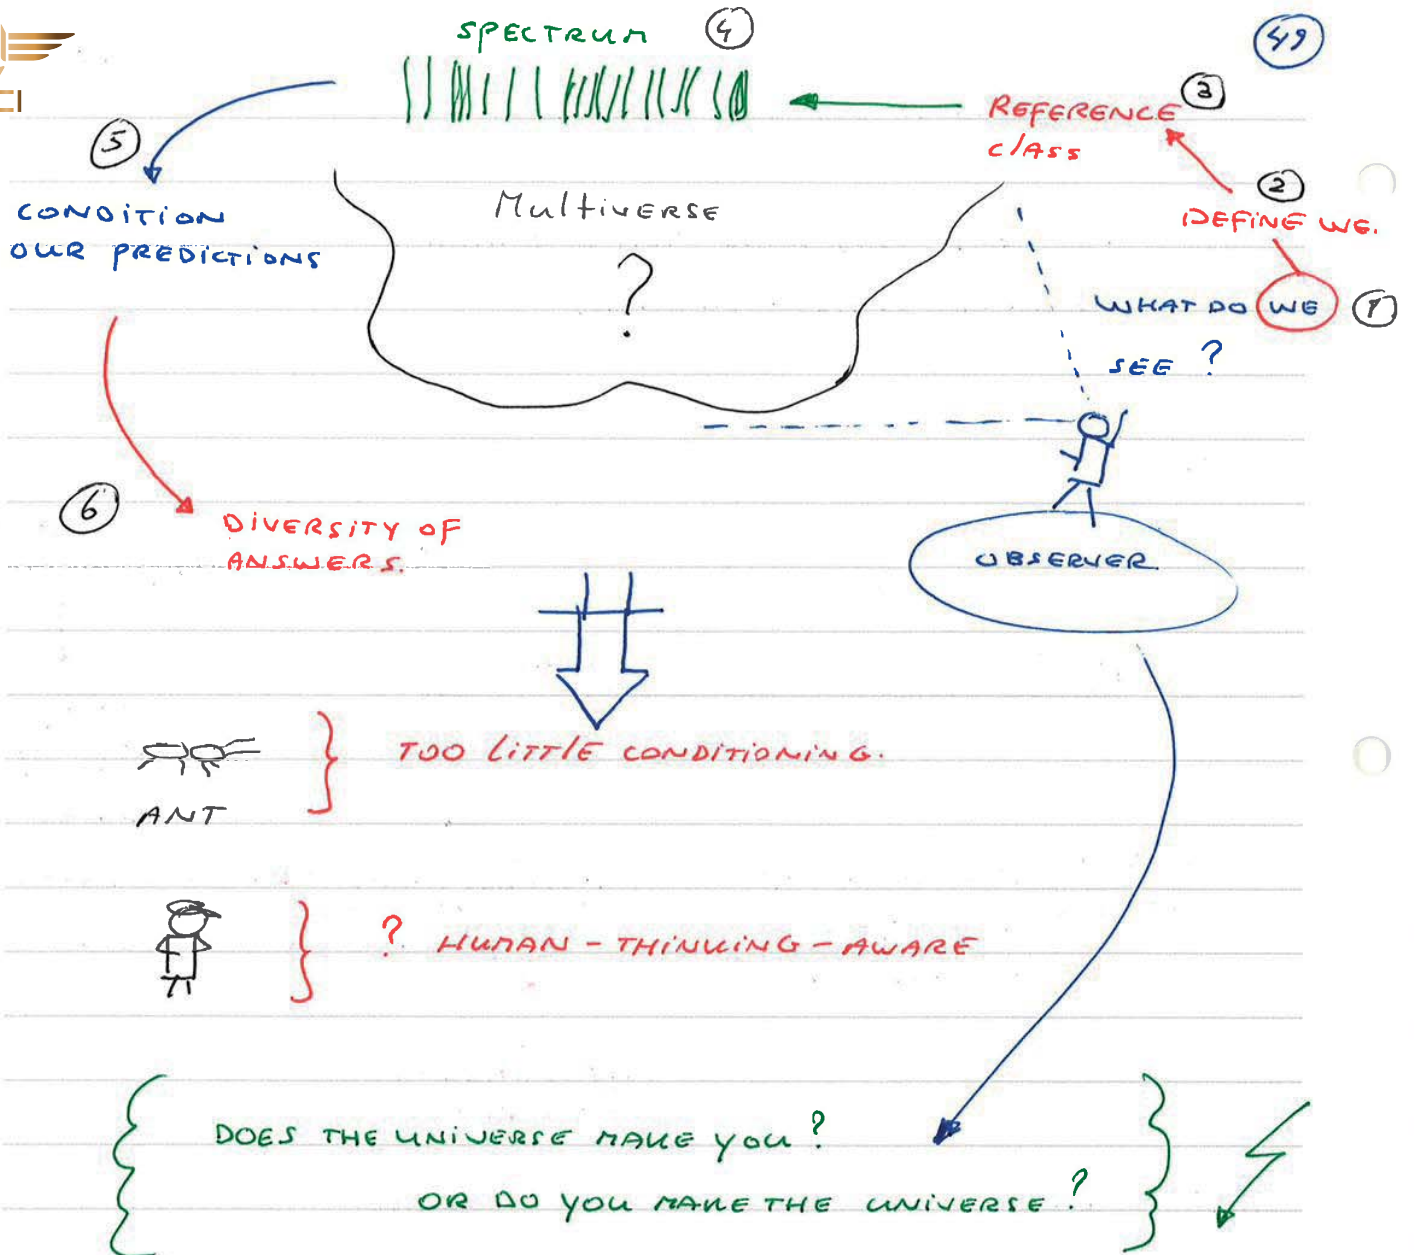 SPECTRUM 4
49
REFERENCE 3
CLASS
2
DEFINE WE.
WHAT DO WE 1
SEE ?
5
CONDITION
OUR PREDICTIONS
Multiverse
?
6
DIVERSITY OF
ANSWERS.
OBSERVER
TOO LITTLE CONDITIONING.
ANT
? HUMAN - THINKING - AWARE
DOES THE UNIVERSE MAKE YOU ?
OR DO YOU MAKE THE UNIVERSE ?